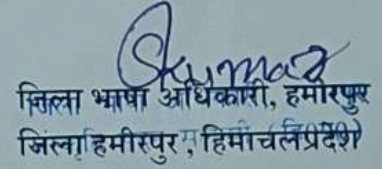 जिला भाषा अधिकारी, हमीरपुर
जिला हमीरपुर, हिमाचल प्रदेश